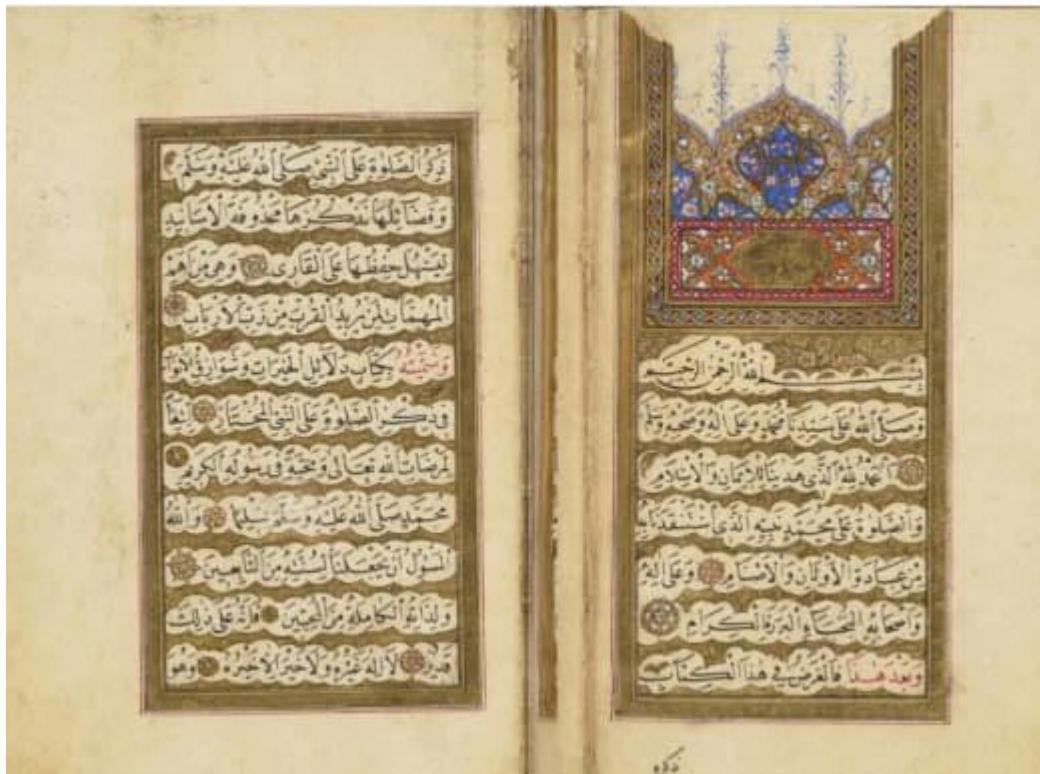 بسم الله الرحمن الرحيم
وصلى الله على سيدنا محمد وعلى اله وصحبه وسلم
الحمد لله الذى هدينا للايمان والاسلام
والصلوة على محمد نبيه الذى استنقذنا به
من عبادة الاوثان والاصنام وعلى اله
واصحابه النجباء البررة الكرام
وبعد هذا فالغرض فى هذا الكتاب
ذكره
ذكر الصلوة على النبى صلى الله عليه وسلم
وفضائلها نذكرها محذوفة الاسانيد
ليسهل حفظها على القارى وهى من اهم
المهمات لمن يريد القرب من رب الارباب
وسميته بكتاب دلائل الخيرات وشوارق الانوار
فى ذكر الصلوة على النبى المختار ابتغاء
لمرضات الله تعالى ومحبة فى رسوله الكريم
محمد صلى الله عليه وسلم تسليما والله
المسؤل ان يجعلنا لسنته من التابعين
ولذاته الكاملة من المحبين فانه على ذلك
قدير لا اله غيره ولا خير الا خيره وهو